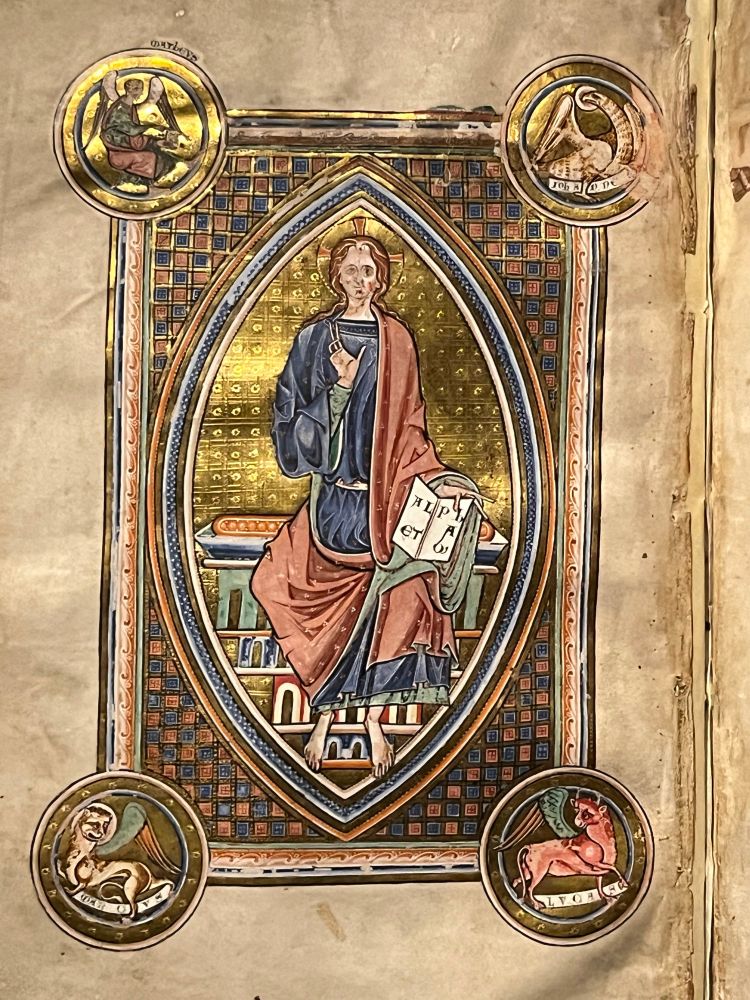 matheus
IOHANNE
ALPh
A
ET ω
MARCVS
LVCAS